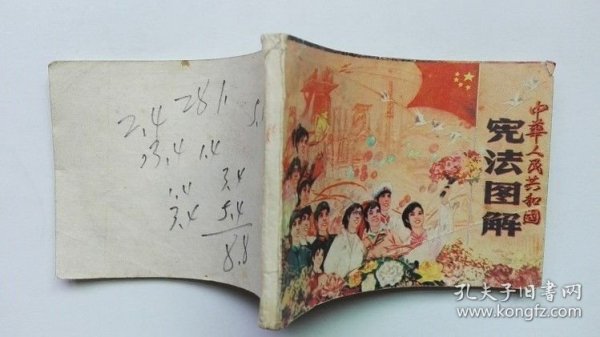 2.4 281. 5.1
23.4 1.4
1.4 3.4
3.4 5.4
8.8
中華人民共和國
宪法图解
孔夫子旧书网
www.kongfz.com